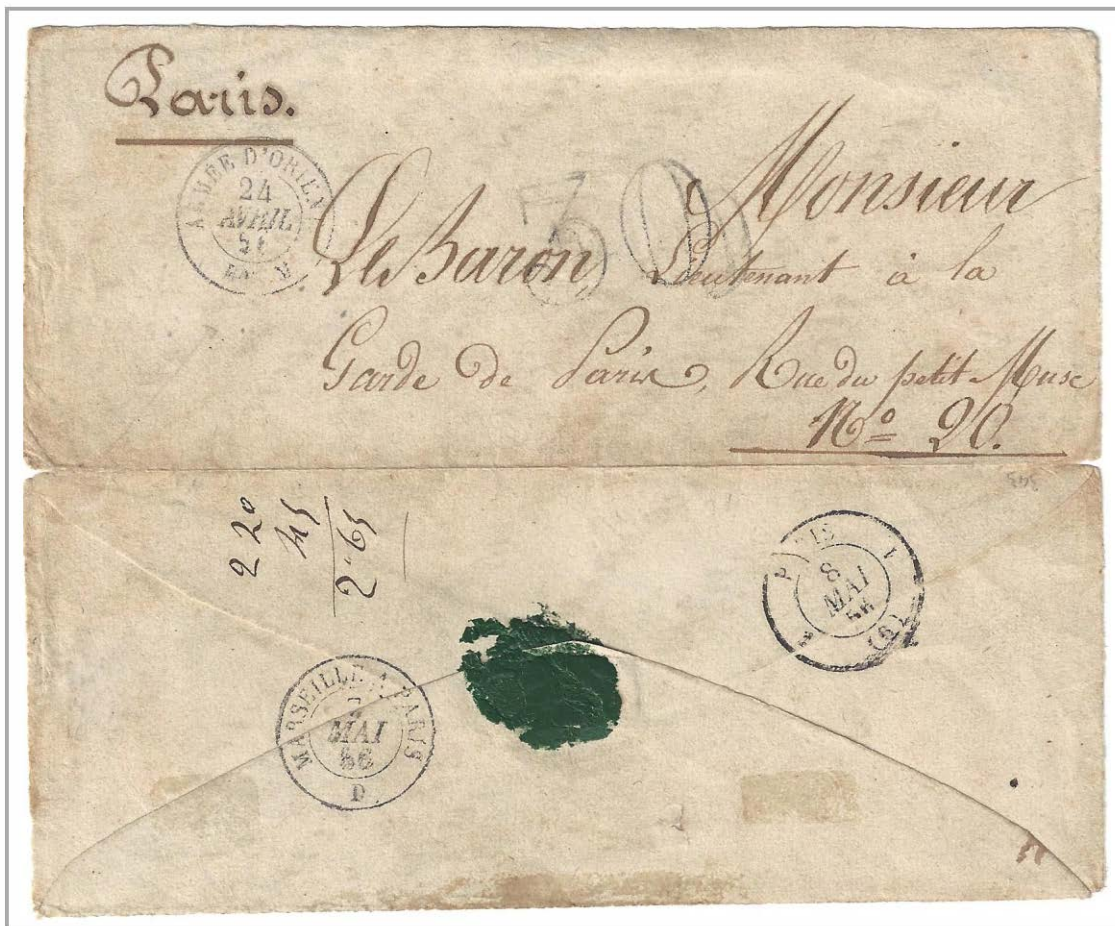 Paris.
ARMÉE D'ORIENT
24
AVRIL
Monsieur
Le Baron, Lieutenant à la
Garde de Paris, Rue du petit Musc
Nº 20.
30
220
45
2"65
PARIS
8
MAI
56
(6)
MARSEILLE A PARIS
7
MAI
56
D
345